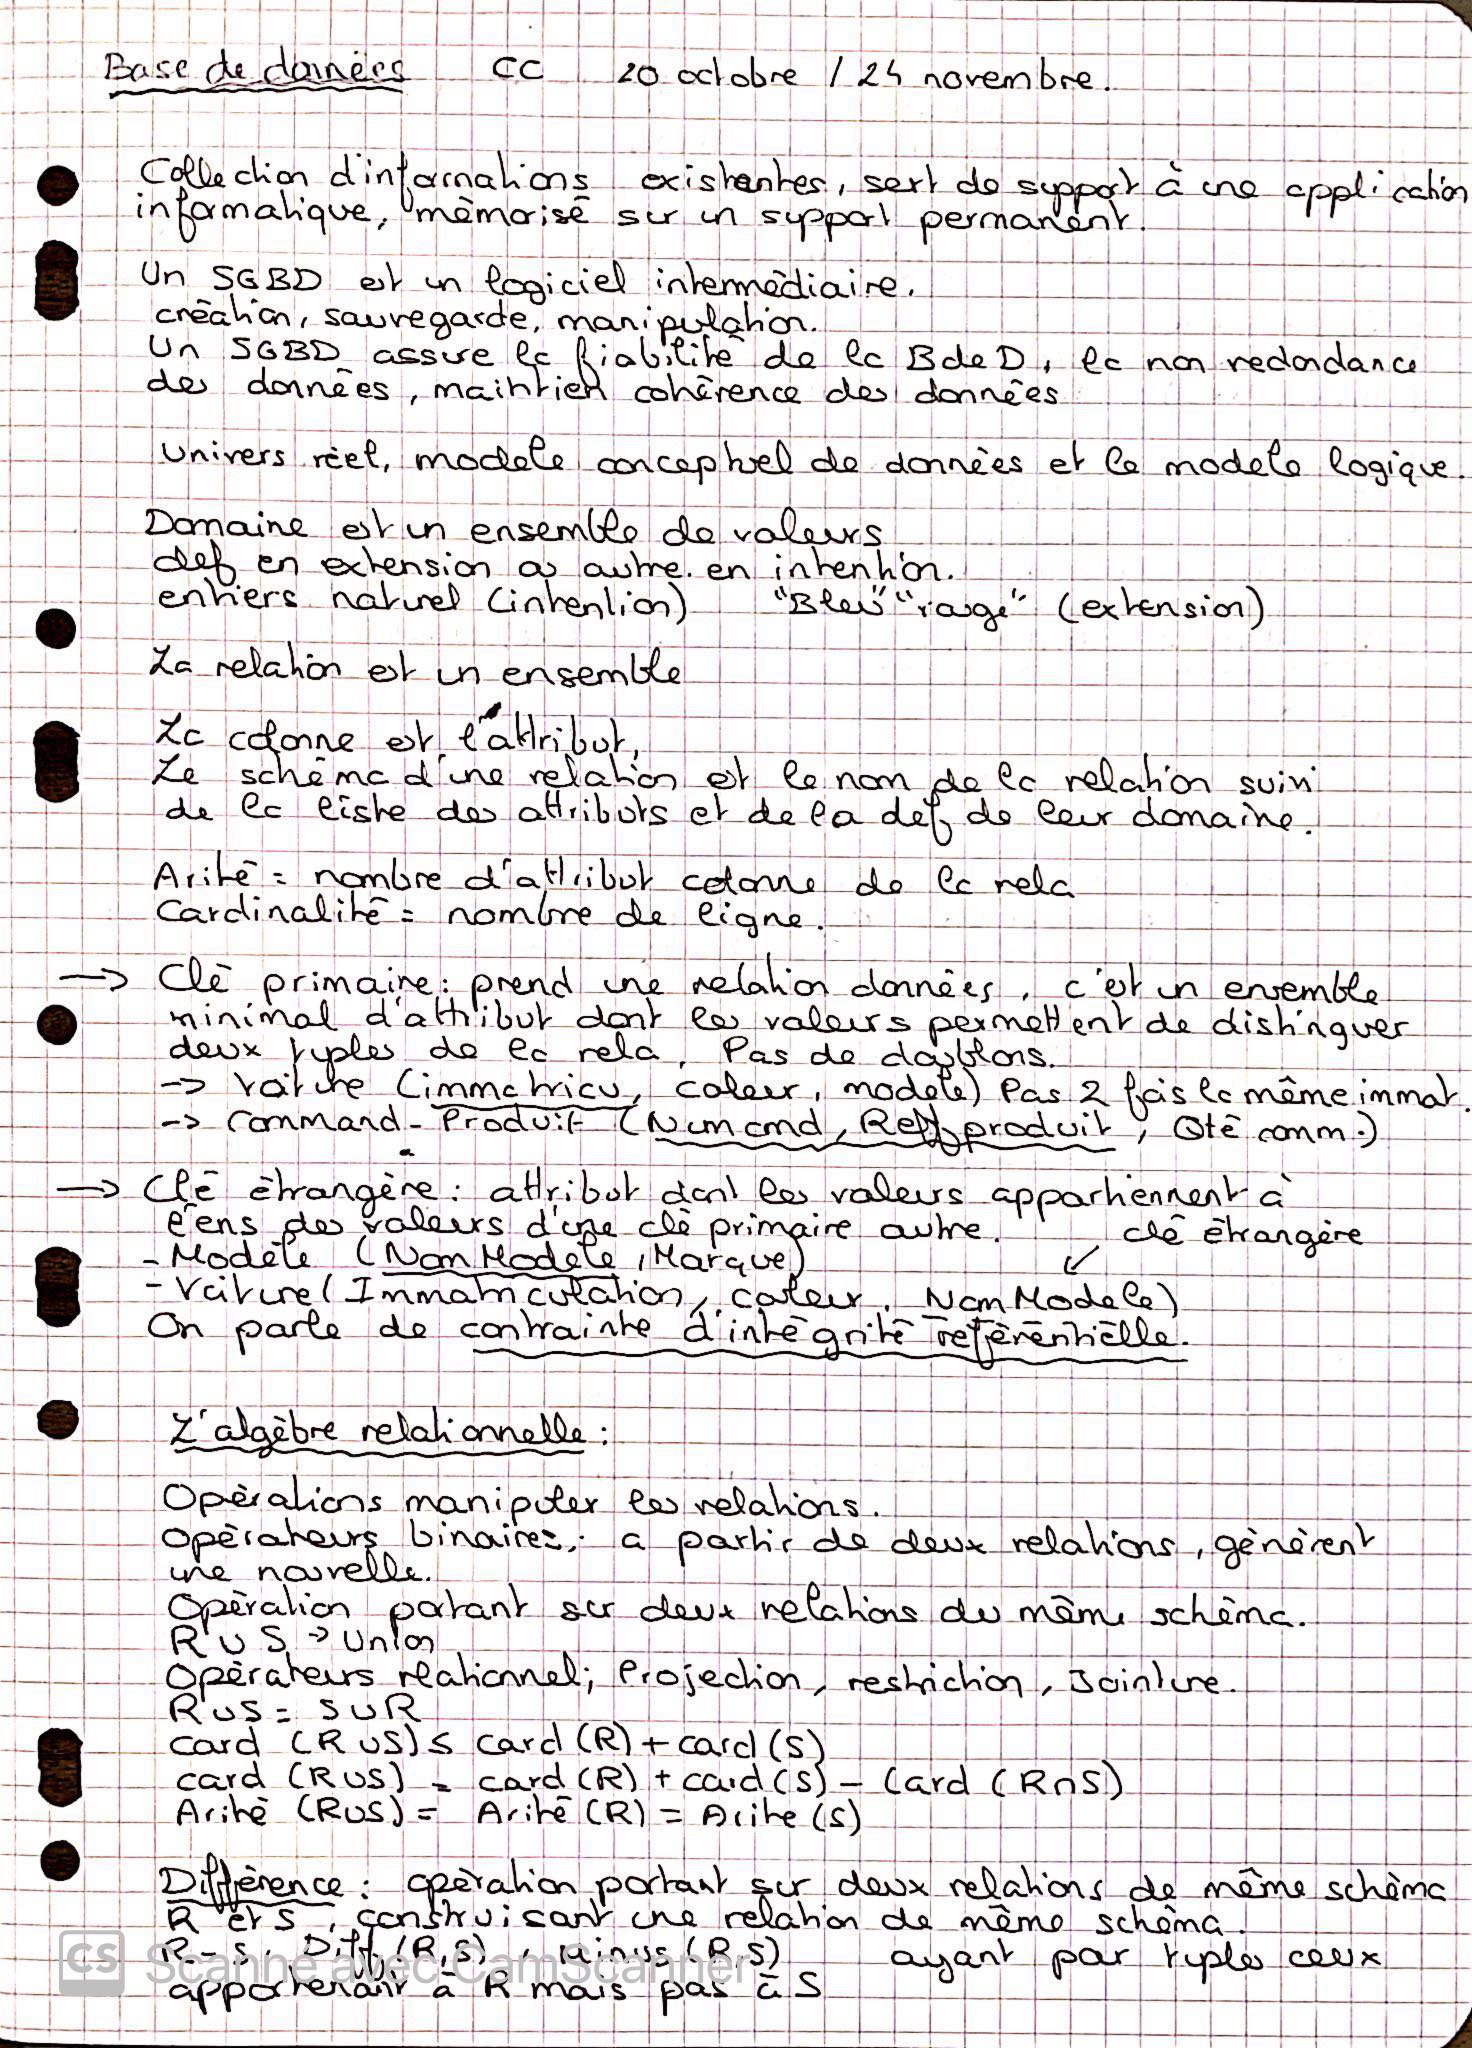 Base de données CC 20 octobre / 24 novembre.
Collection d'informations existantes, sert de support à une application
informatique, mémorisé sur un support permanent.
Un SGBD est un logiciel intermédiaire.
création, sauvegarde, manipulation.
Un SGBD assure la fiabilité de la BdeD, la non redondance
des données, maintien cohérence des données
Univers réel, modele conceptuel de données et le modele logique.
Domaine est un ensemble de valeurs
def en extension ou autre en intention.
entiers naturel (intention) "Bleu" "rouge" (extension)
La relation est un ensemble
La colonne est l'attribut,
Le schéma d'une relation est le nom de la relation suivi
de la liste des attributs et de la def de leur domaine.
Arité = nombre d'attribut colonne de la rela
Cardinalité = nombre de ligne.
→ Clé primaire : prend une relation données, c'est un ensemble
minimal d'attribut dont les valeurs permettent de distinguer
deux tuples de la rela. Pas de doublons.
→ Voiture (immatricu, couleur, modele) Pas 2 fois la même immat.
→ Command-Produit (Numcmd, Reffproduit, Qté comm.)
→ Clé étrangère : attribut dont les valeurs appartiennent à
l'ens des valeurs d'une clé primaire autre. clé étrangère
- Modèle (NomModele, Marque)
- Voiture (Immatriculation, couleur, NomModele)
On parle de contrainte d'intégrité référentiélle.
L'algèbre relationnelle :
Opérations manipuler les relations.
Opérateurs binaires; a partir de deux relations, génèrent
une nouvelle.
Opération portant sur deux relations du même schéma.
R ∪ S → Union
Opérateurs relationnel; Projection, restriction, Jointure.
R∪S = S∪R
card (R∪S) ≤ card (R) + card (S)
card (R∪S) = card (R) + card (S) - Card (R∩S)
Arité (R∪S) = Arité (R) = Arite (S)
Différence : opération portant sur deux relations de même schéma
R et S, construisant une relation de même schéma.
R-S, Diff (R,S), minus (R,S) ayant par tuples ceux
appartenant à R mais pas à S
CS Scanné avec CamScanner